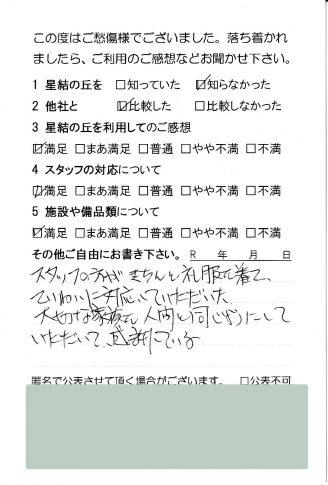 この度はご愁傷様でございました。落ち着かれ
ましたら、ご利用のご感想などお聞かせ下さい。
1 星結の丘を □知っていた ☑知らなかった
2 他社と ☑比較した □比較しなかった
3 星結の丘を利用してのご感想
☑満足 □まあ満足 □普通 □やや不満 □不満
4 スタッフの対応について
☑満足 □まあ満足 □普通 □やや不満 □不満
5 施設や備品類について
☑満足 □まあ満足 □普通 □やや不満 □不満
その他ご自由にお書き下さい。 R 年 月 日
スタッフの方が きちんと礼服を着て、
ていねいに対応していただいた、
大切な家族を、人間と同じようにして
いただいて、感謝している
匿名で公表させて頂く場合がございます。 □公表不可